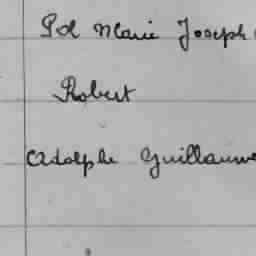 Pol Marie Joseph
Robert
Adolphe Guillaume